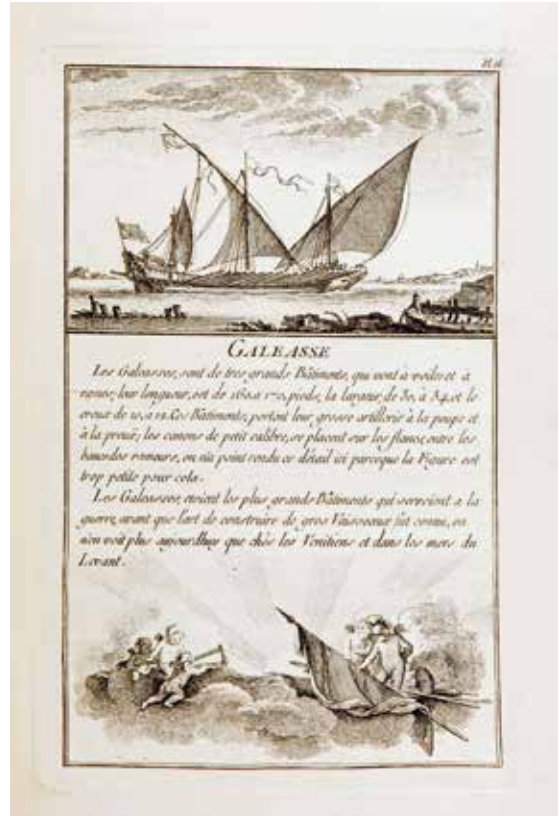 GALEASSE
Les Galeasses, sont de tres grands Bâtiments, qui vont à voiles et à
rames; leur longueur, est de 160 a 170, pieds, la largeur de 30, à 34, et le
creux de 10, a 12. Ces Bâtiments, portent leur grosse artillerie à la poupe et
à la proue; les canons de petit calibre, se placent sur les flancs, entre les
bancs des rameurs, on n'a point rendu ce détail ici parceque la Figure est
trop petite pour cela.
Les Galeasses, etoient les plus grands Bâtiments qui servoient a la
guerre, avant que l'art de construire de gros Vaisseaux fut connu, on
n'en voit plus aujourdhuy que chés les Venitiens et dans les mers du
Levant.